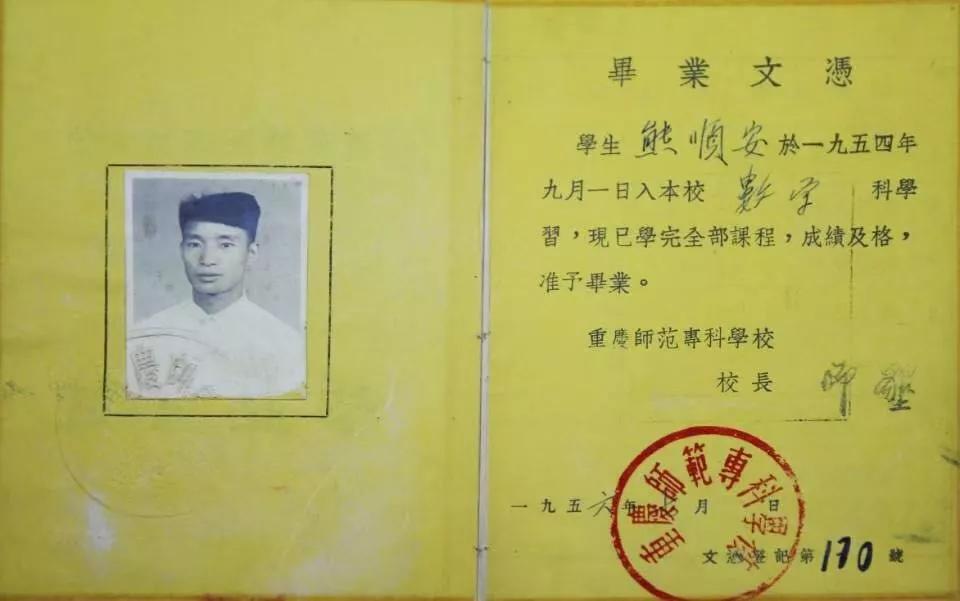 畢業文憑
學生 熊順安 於一九五四年
九月一日入本校 數学 科學
習，現已學完全部課程，成績及格，
准予畢業。
重慶師范專科學校
校長
重慶師範專科學校
一九五六年 月 日
文憑登記第170號